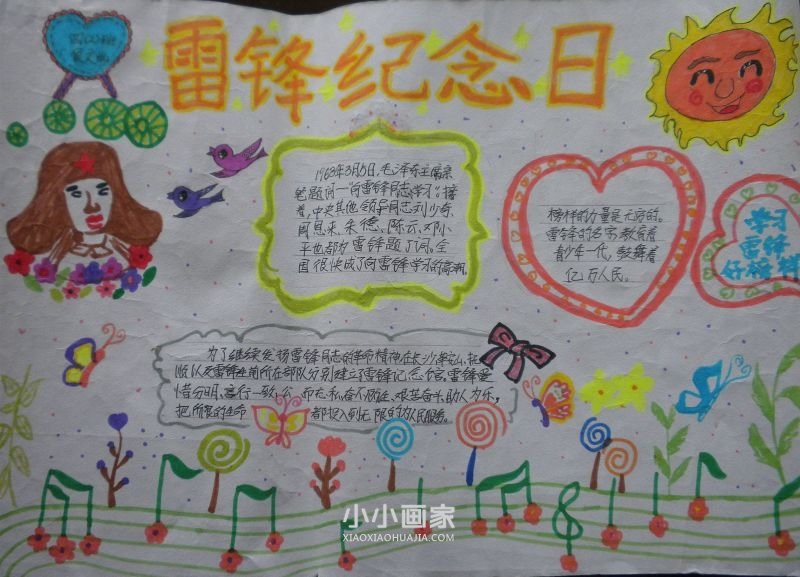 雷锋纪念日
1963年3月5日,毛泽东主席亲
笔题词“向雷锋同志学习”接
着,中央其他领导同志刘少奇、
周恩来、朱德、陈云、邓小
平也都为雷锋题了词。全
国很快成了向雷锋学习的高潮。
榜样的力量是无穷的。
雷锋的名字教育着
青少年一代,鼓舞着
亿万人民。
学习
雷锋
好榜样
为了继续发扬雷锋同志的革命精神在长沙
雷锋生前所在部队分别建立雷锋纪念馆。雷锋爱
憎分明、言行一致,公而无私奋不顾身、艰苦奋斗、助人为乐,
把所有的生命都投入到无限的为人民服务。
小小画家
XIAOXIAOHUAJIA.COM